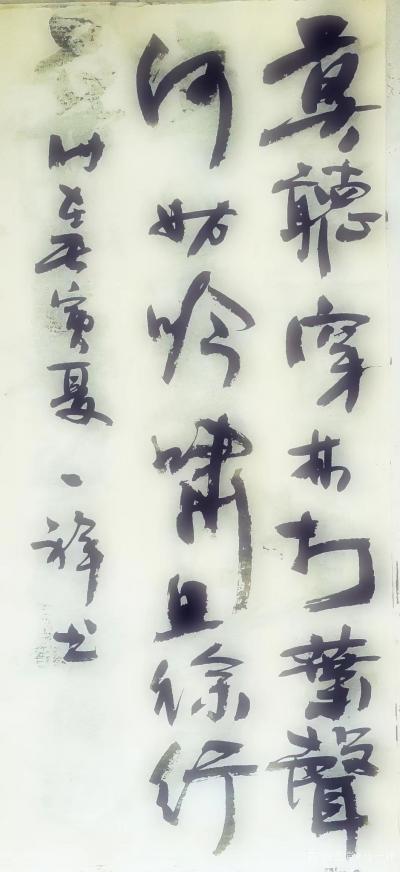 莫聽穿林打葉聲
何妨吟嘯且徐行
时在庚寅夏一书